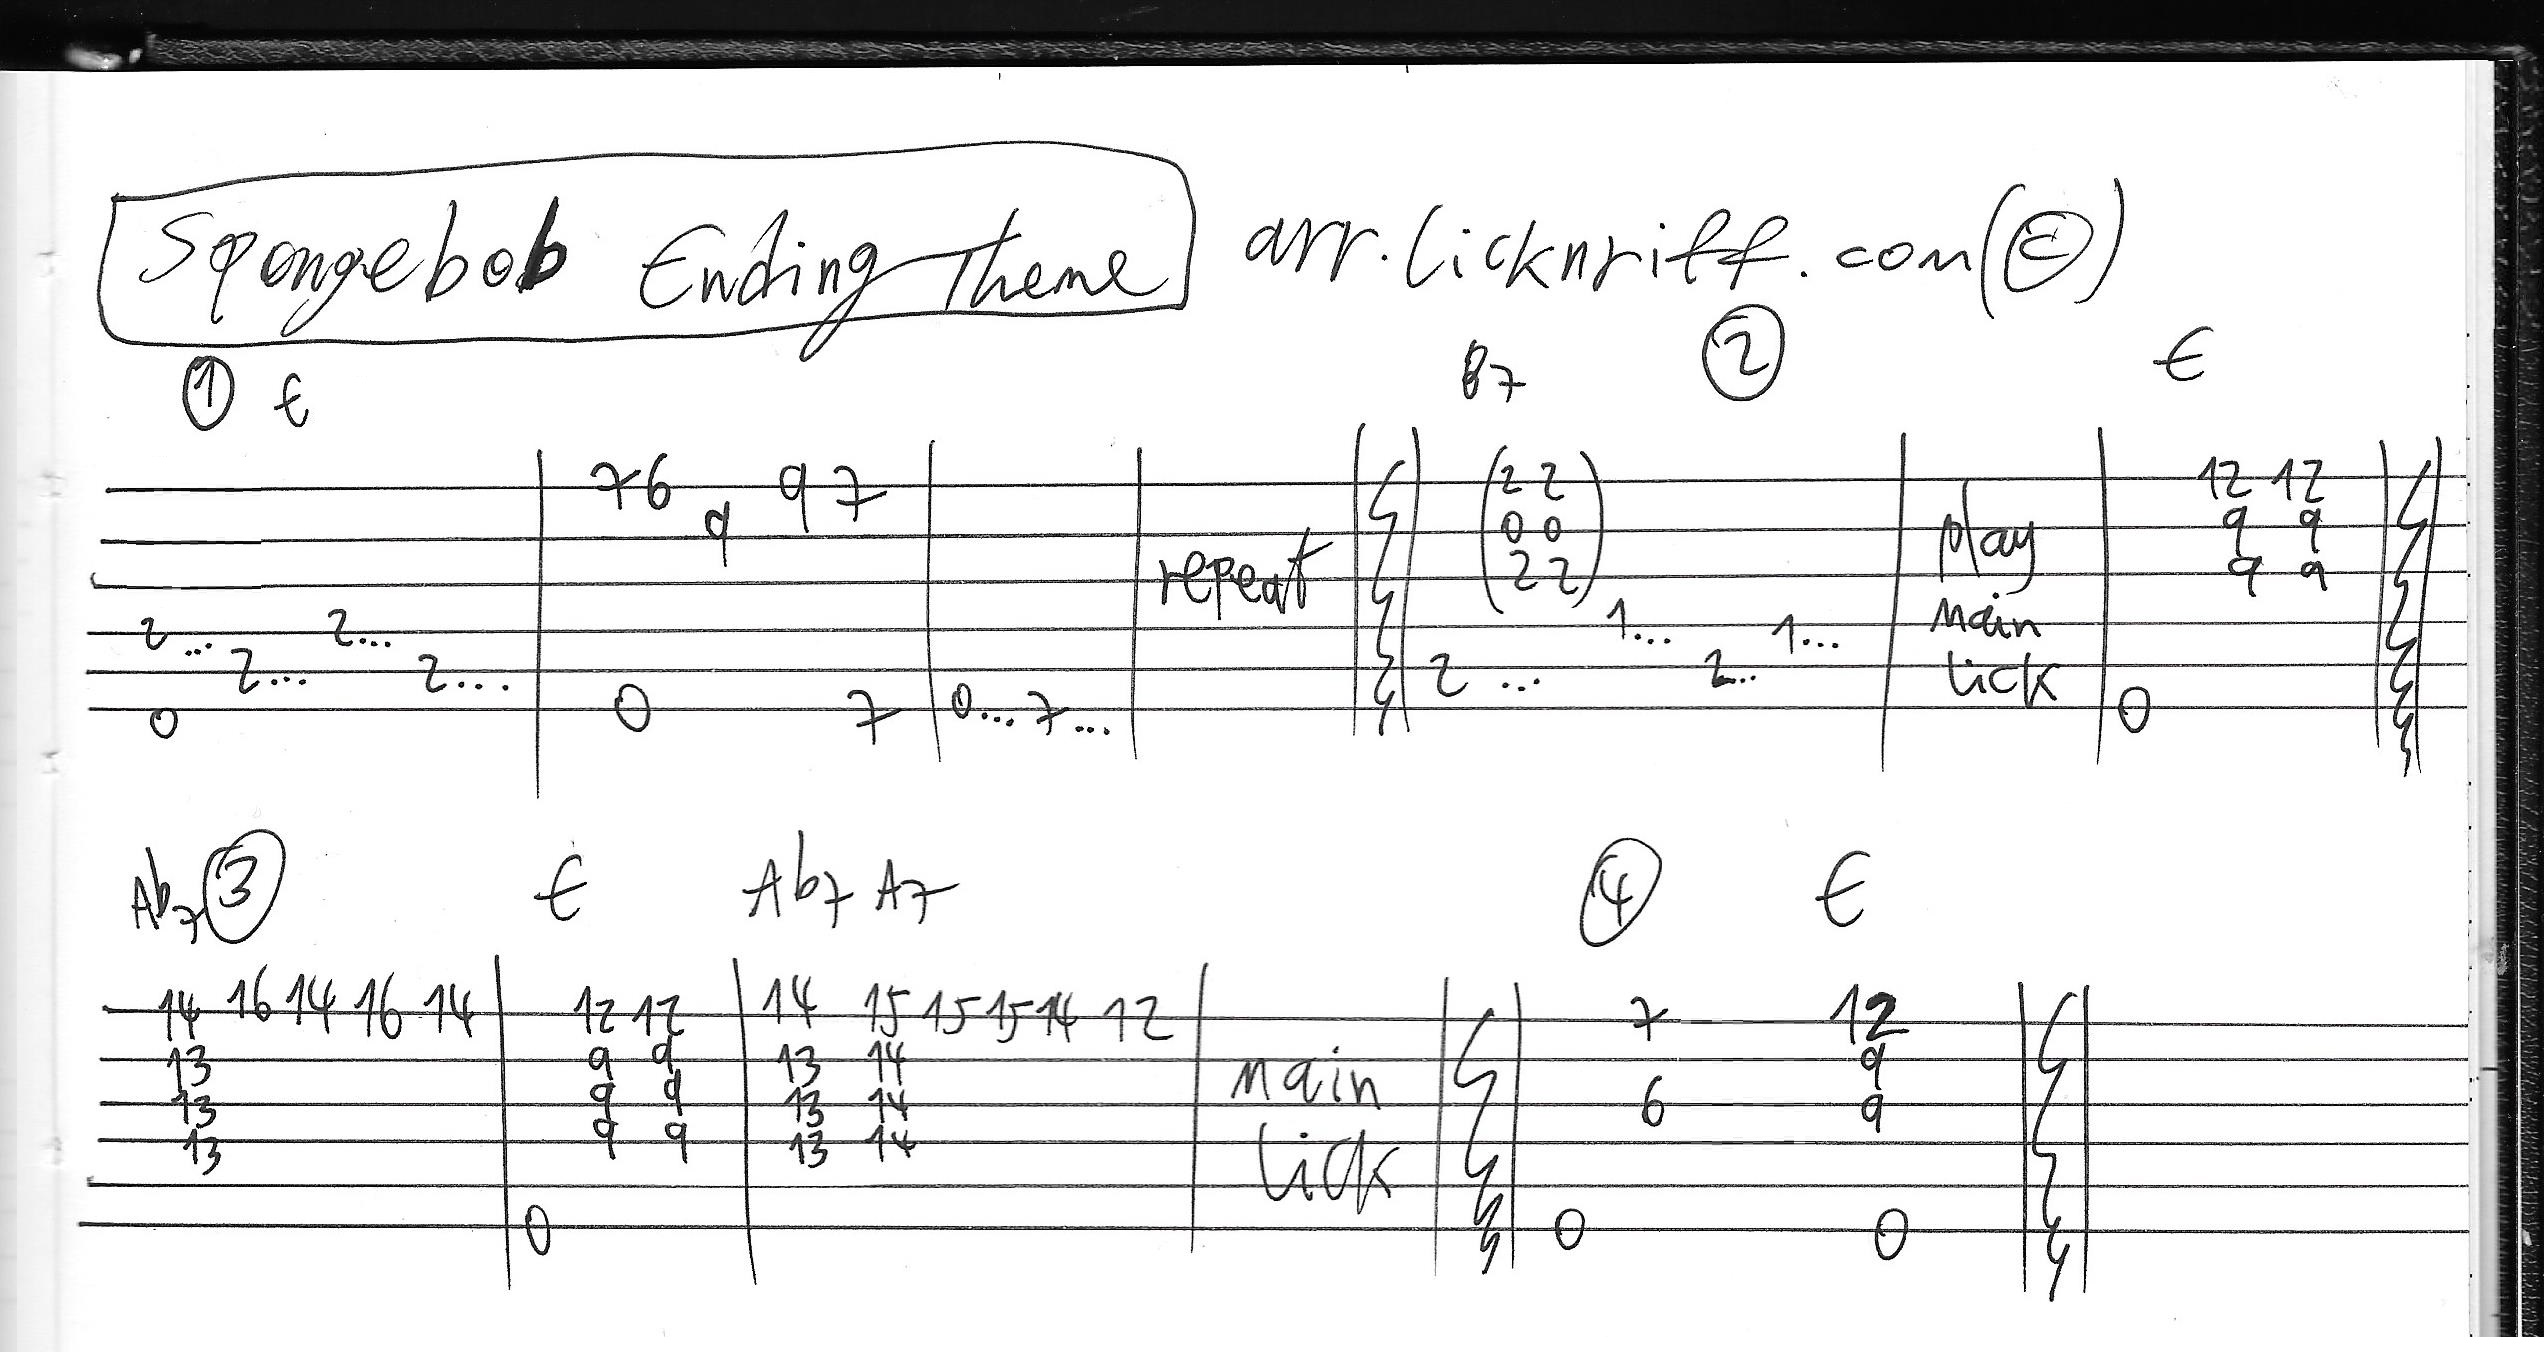 Spongebob Ending Theme arr. licknriff.com (E)
1 E B7 2 E
76 97 22 12 12
9 00 9 9
repeat 22 play 9 9
2... 2... 1... 1... main
2... 2.... 2 ... 2... lick
0 0 7 0... 7... 0
Ab7 3 E Ab7 A7 4 E
14 16 14 16 14 12 12 14 15 15 15 14 12 7 12
13 9 9 13 14 main 9
13 9 9 13 14 6 9
13 9 9 13 14 lick
0 0 0